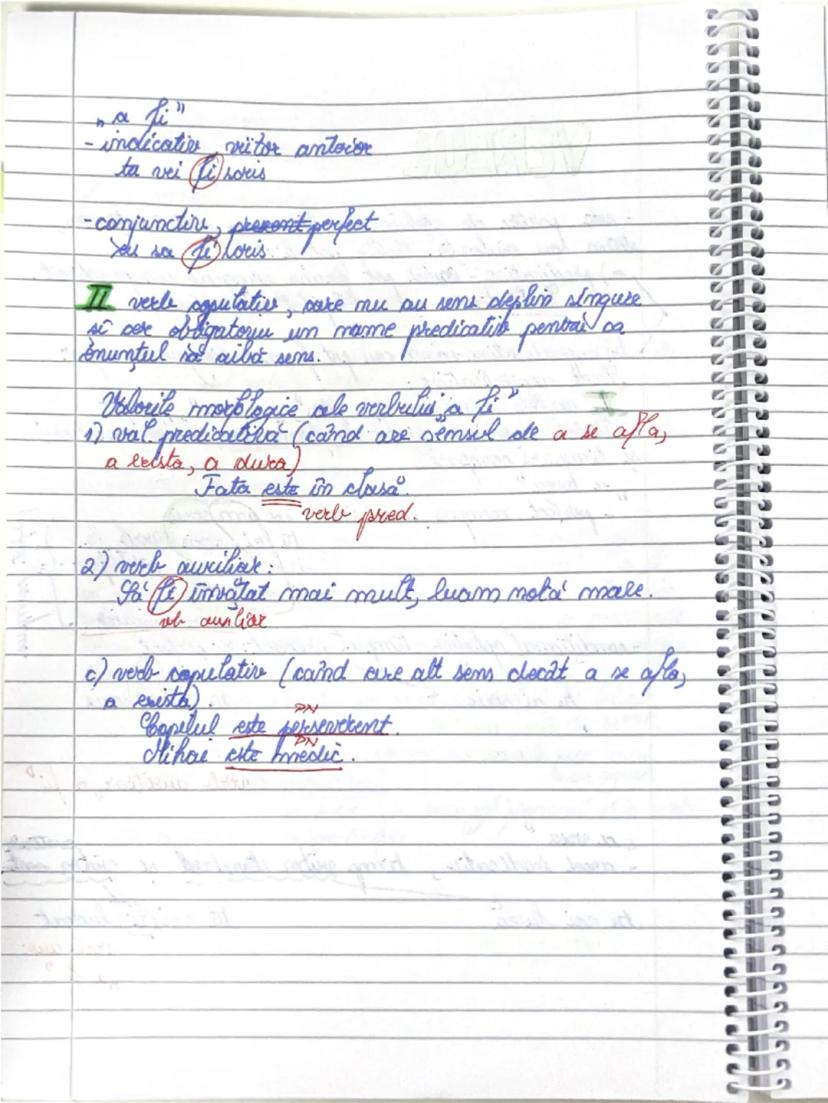 „a fi”
- indicativ, viitor anterior
tu vei fi scris
- conjunctiv, prezent perfect
eu să fi scris
II verb copulativ, care nu au sens deplin singure
și cer obligatoriu un nume predicativ pentru ca
enunțul să aibă sens.
Valorile morfologice ale verbului „a fi” I
1) val. predicativă (când are sensul de a se afla,
a exista, a dura)
Fata este în clasă.
verb pred.
2) verb auxiliar:
Să fi învățat mai mult, luam notă mare.
vb auxiliar
c) verb copulativ (când are alt sens decât a se afla,
a exista).
PN
Copilul este perseverent.
PN
Mihai este medic.